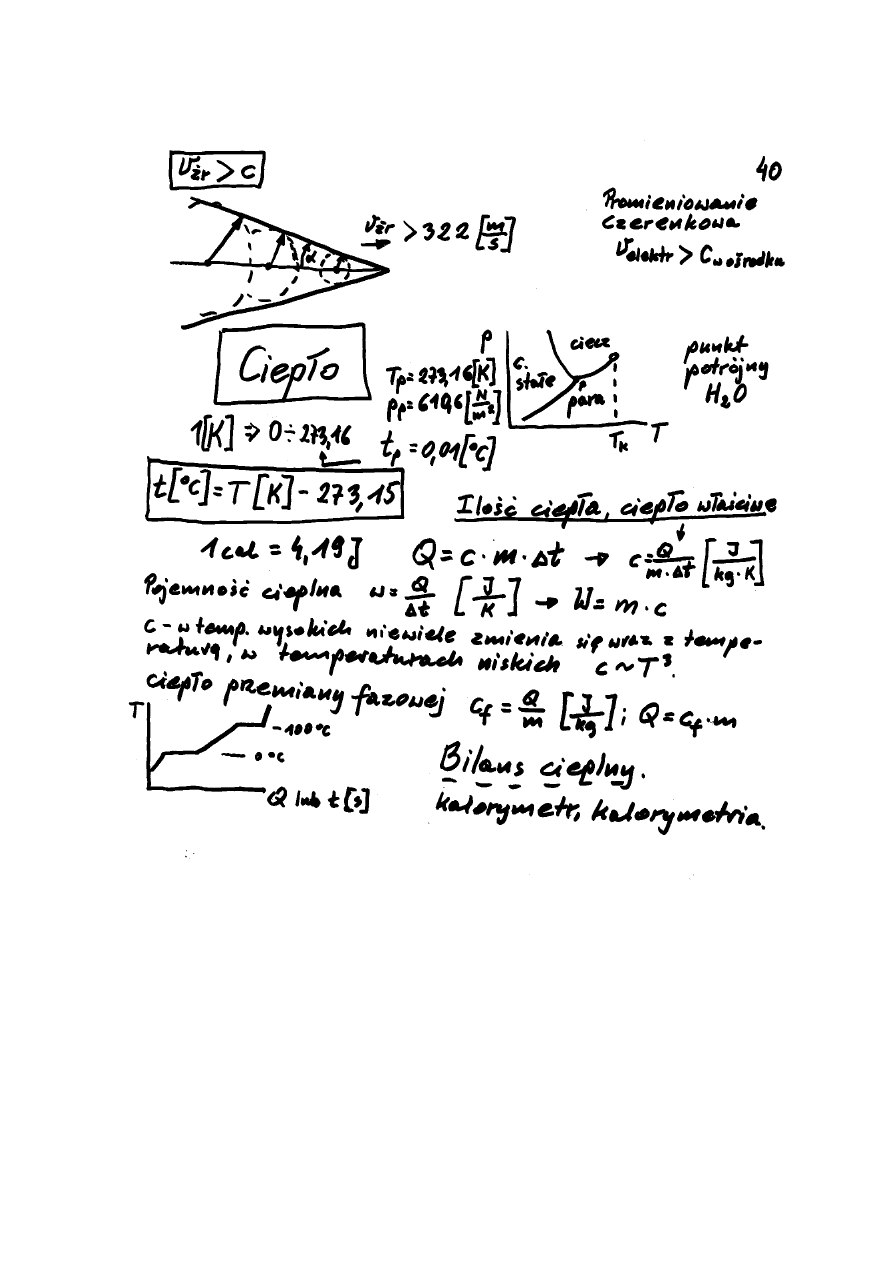 40
V źr > c
V źr > 322 [m/s]
Promieniowanie
czerenkowa
V elektr > C w ośrodka
α
Ciepło
Tp = 273,16 [K]
pp = 610,6 [N/m²]
tp = 0,01 [°C]
p
ciecz
c. stałe
para
Tk T
punkt
potrójny
H₂O
1[K] ⇒ 0 ÷ 273,16
t[°C] = T[K] - 273,15
Ilość ciepła, ciepło właściwe
1 cal = 4,19 J
Q = c · m · Δt → c = Q/(m · Δt) [J/(kg · K)]
Pojemność cieplna w = Q/Δt [J/K] → W = m · c
c - w temp. wysokich niewiele zmienia się wraz z tempe-
raturą, w temperaturach niskich c ~ T³.
ciepło przemiany fazowej c_f = Q/m [J/kg]; Q = c_f · m
T
- 100 °C
— 0 °C
Q lub t [s]
Bilans cieplny.
kalorymetr, kalorymetria.